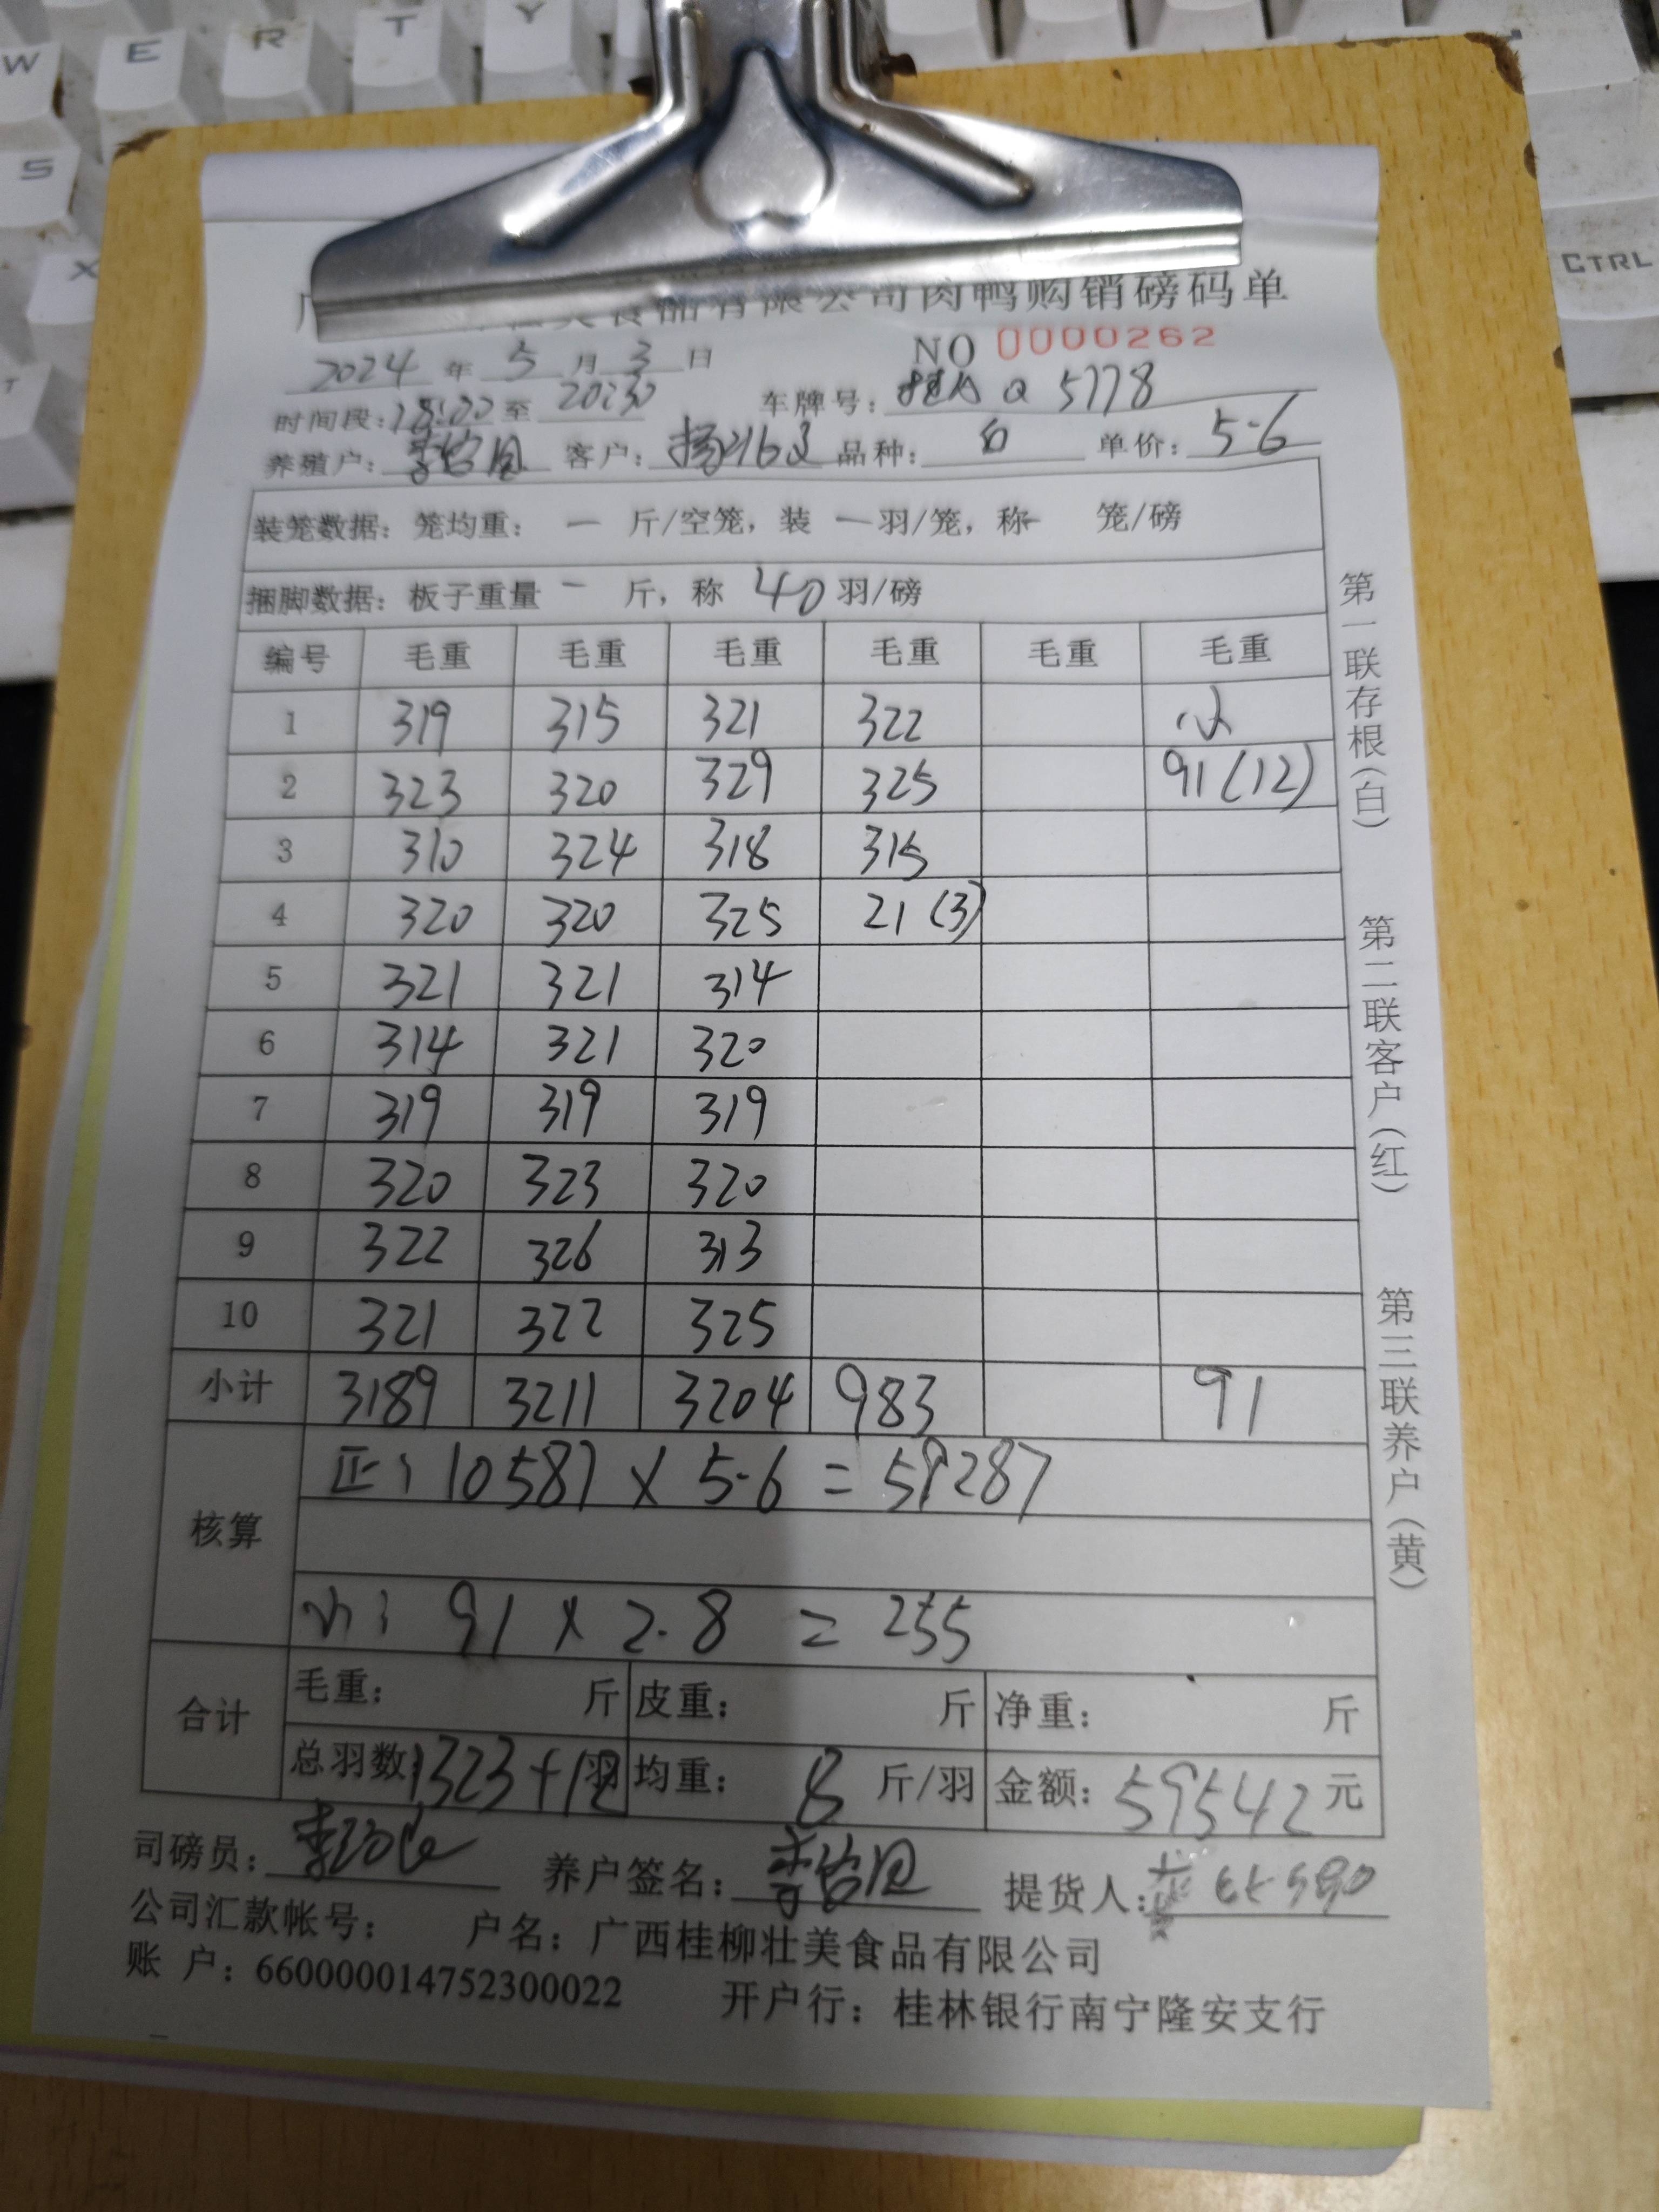 W E R T Y
S
X
CTRL
食品有限公司肉鸭购销磅码单
2024 年 5 月 3 日 NO 0000262
时间段: 18:00 至 20:30 车牌号: 桂A Q 5778
养殖户: 客户: 品种: 白 单价: 5.6
装笼数据: 笼均重: 一 斤/空笼, 装 一 羽/笼, 称 一 笼/磅
捆脚数据: 板子重量 一 斤, 称 40 羽/磅
编号 毛重 毛重 毛重 毛重 毛重 毛重
1 319 315 321 322 小
2 323 320 329 325 91(12)
3 310 324 318 315
4 320 320 325 21(3)
5 321 321 314
6 314 321 320
7 319 319 319
8 320 323 320
9 322 326 313
10 321 322 325
小计 3189 3211 3204 983 91
核算 正: 10587 × 5.6 = 59287
小: 91 × 2.8 = 255
合计 毛重: 斤 皮重: 斤 净重: 斤
总羽数: 1323+12 羽 均重: 8 斤/羽 金额: 59542 元
司磅员: 养户签名: 提货人:
公司汇款帐号: 户名: 广西桂柳壮美食品有限公司
账 户: 660000014752300022 开户行: 桂林银行南宁隆安支行
第一联存根(白) 第二联客户(红) 第三联养户(黄)